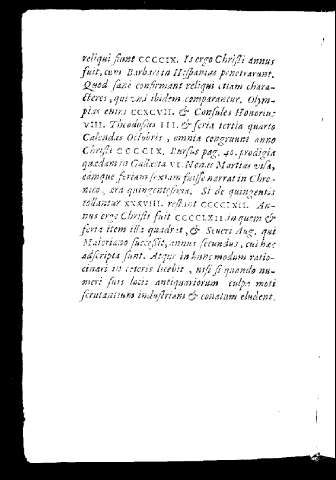 reliqui fiunt CCCCIX. Is ergo Christi annus
fuit, cum Barbari in Hispanias penetrarunt.
Quod sane confirmant reliqui etiam chara-
cteres, qui una ibidem comparantur, Olym-
pias enim CCXCVII. & Consules Honorius
VIII. Theodosius III. & feria tertia quarto
Calendas Octobris, omnia congruunt anno
Christi CCCCIX. Rursus pag. 40. prodigia
quædam in Gallæcia VI. Nonas Martias visa,
eamque feriam sextam fuisse narrat in Chro-
nico, æra quingentesima. Si de quingentis
tollantur XXXVIII. restant CCCCLXII. An-
nus ergo Christi fuit CCCCLXII. in quem &
feria item illa quadrat, & Severi Aug. qui
Maioriano successit, annus secundus, cui hæc
adscripta sunt. Atque in hunc modum ratio-
cinari in ceteris licebit, nisi si quando nu-
meri suis locis antiquariorum culpa moti
scrutantium industriam & conatum eludent.